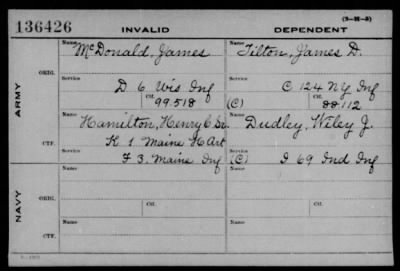 136426 INVALID DEPENDENT (3-M-3)
ARMY
ORIG.
Name McDonald, James
Service D 6 Wis Inf
Ctf. 99.518
Name Tilton, James D.
Service C 124 NY Inf
(C) Ctf. 88.112
CTF.
Name Hamilton, Henry C Sr.
K 1 Maine H Art
Service F 3 Maine Inf
Name Dudley, Wiley J.
Service (C) I 69 Ind Inf
NAVY
ORIG.
Name
Name
CTF.
Name
Name